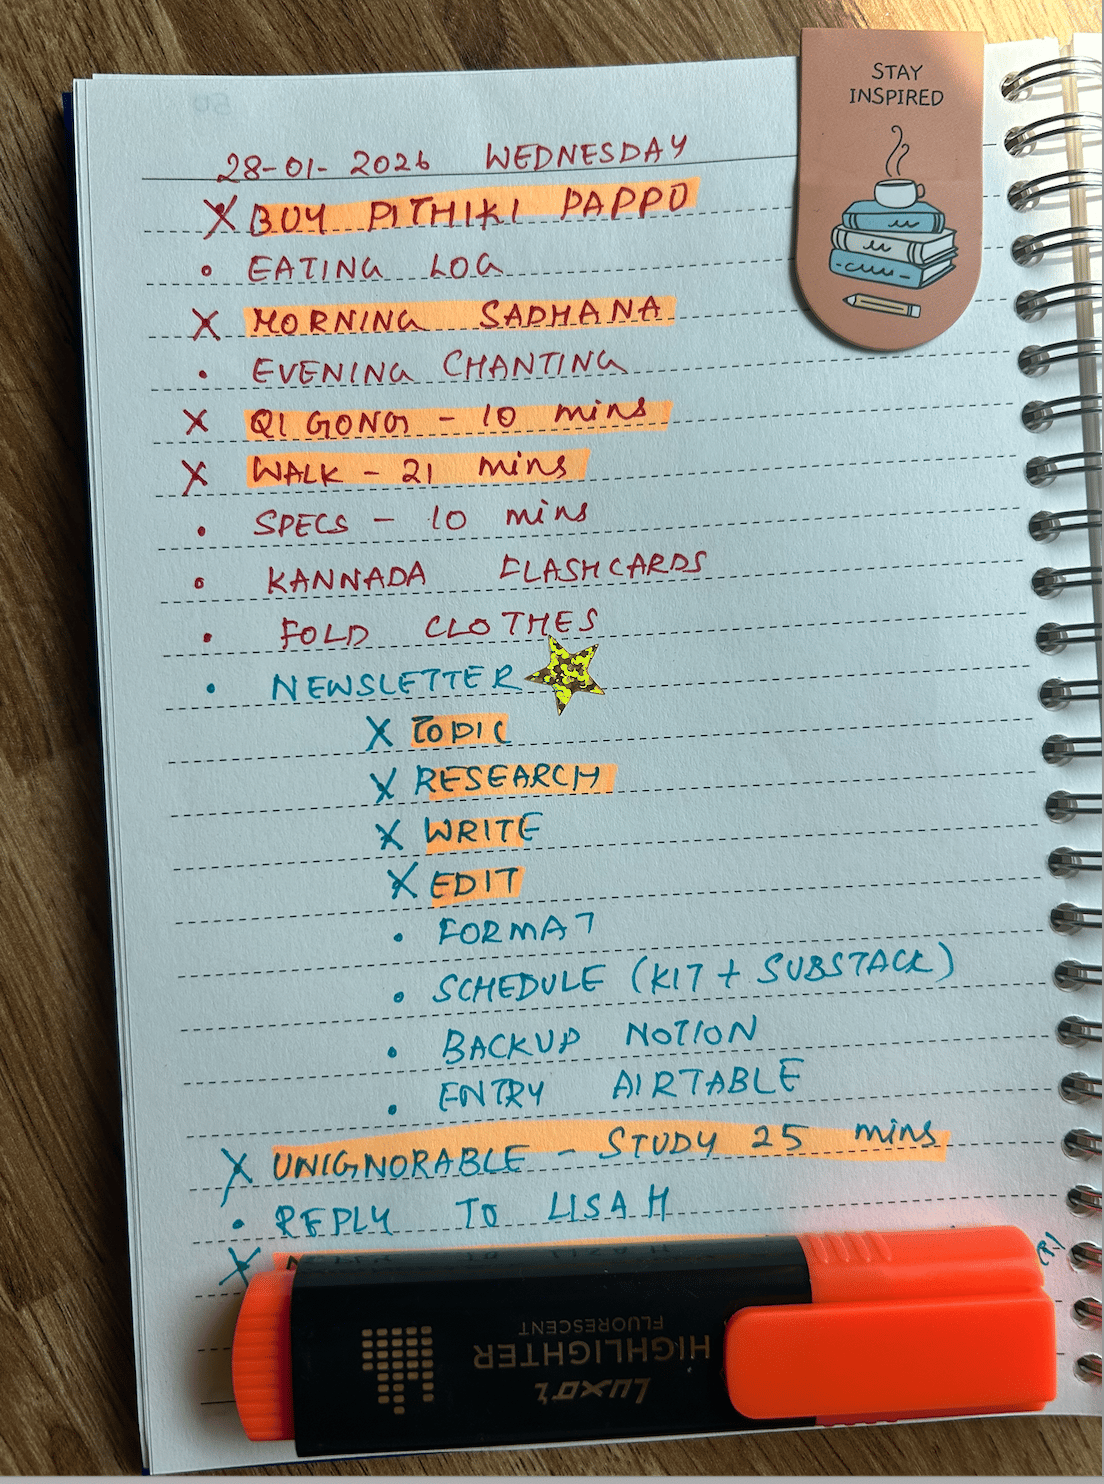 STAY
INSPIRED
28-01-2026 WEDNESDAY
X BUY PITHIKI PAPPU
• EATING LOG
X MORNING SADHANA
• EVENING CHANTING
X QI GONG - 10 mins
X WALK - 21 mins
• SPECS - 10 mins
• KANNADA FLASHCARDS
• FOLD CLOTHES
• NEWSLETTER
X TOPIC
X RESEARCH
X WRITE
X EDIT
• FORMAT
• SCHEDULE (KIT + SUBSTACK)
• BACKUP NOTION
• ENTRY AIRTABLE
X UNIGNORABLE - STUDY 25 mins
• REPLY TO LISA H
X
Luxor
HIGHLIGHTER
FLUORESCENT